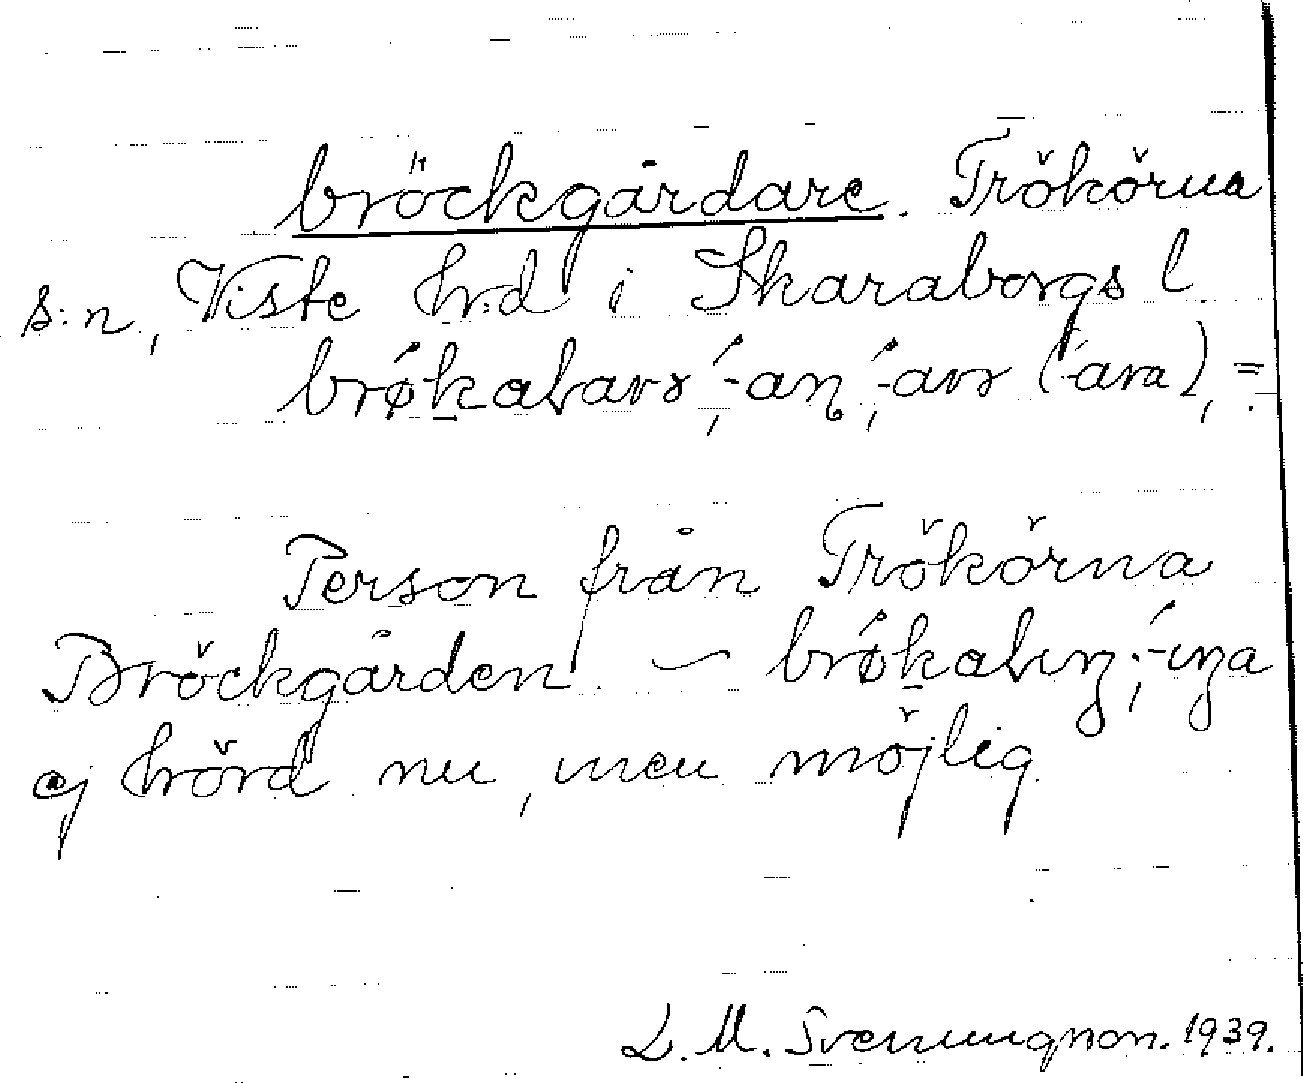 bröckgårdare. Trökörna
s:n, Viste h:d i Skaraborgs l.
brǿkaɫavr, -an, -avr (-ara), =
Person från Trökörna
Bröckgården. — brǿkaɫıŋ, -ıŋa
ej hörd nu, men möjlig.
L. M. Svenungsson. 1939.